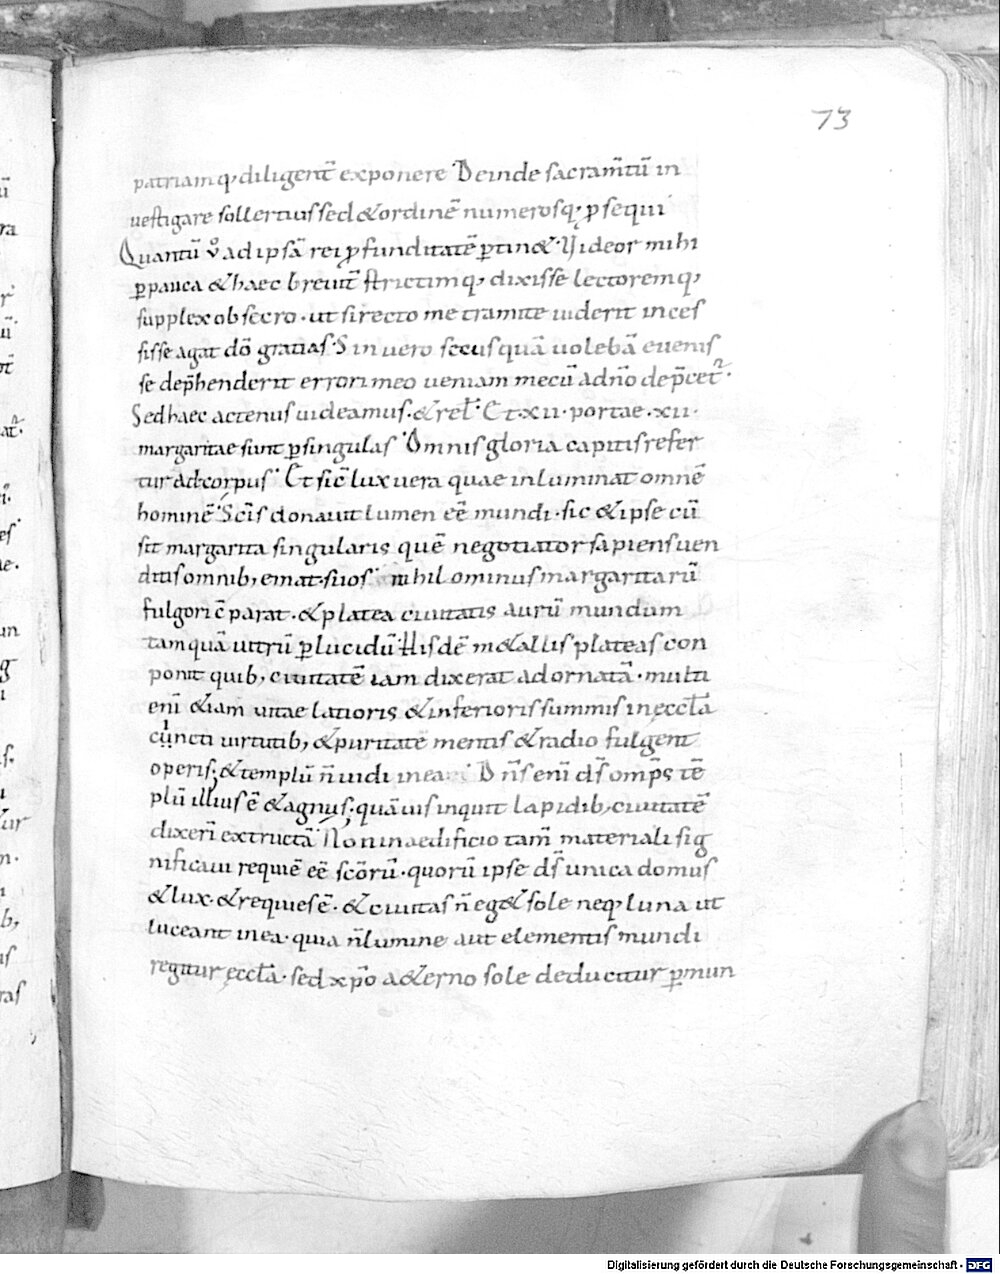 73
patriamq; diligent̄ exponere Deinde sacram̄tū in
uestigare sollertius sed & ordinē numerosq; ꝑsequi
Quantū v̊ ad ipsā rei ꝓfunditatē ꝑtin& · Videor mihi
ꝑpauca & haec breuit̄ strictimq; dixisse lectoremq;
supplex obsecro · ut si recto me tramite uiderit inces
sisse agat dō gratias · Sin uero secus quā uolebā euenis
se dep̄henderit errori meo ueniam mecū ad dn̄o dep̄cet᷑ ·
Sed haec actenus uideamus · & rel̄ · Et · xii · portae · xii ·
margaritae sunt ꝑ singulas · Omnis gloria capitis refer
tur ad corpus · Et sic̄ lux uera quae inluminat omnē
hominē Sc̄is donauit lumen eē mundi · sic & ipse cū
sit margarita singularis quē negotiator sapiens uen
ditis omnib; emat · suos nihilominus margaritarū
fulgori c̄parat · & platea ciuitatis aurū mundum
tamquā uitrū ꝑlucidū · Hisdē m&allis plateas con
ponit quib; ciuitatē iam dixerat adornatā · multi
eni̅ &iam uitae latioris & inferioris summis in ęccl̄a
cuncti uirtutib; & puritate mentis & radio fulgent
operis; & templū n̄ uidi in ea · Dn̄s eni̅ ds̄ omp̄s tē
plū illius ē & agnus; quāuis inquit lapidib; ciuitatē
dixeri̅ extructā Non in aedificio tam̄ materiali sig
nificaui requiē eē sc̄orū · quorū ipse ds̄ unica domus
& lux · & requies ē · & ciuitas n̄ eg& sole neq; luna ut
luceant in ea · quia n̄ lumine aut elementis mundi
regitur ęccl̄a · sed xp̄o a&erno sole deducitur ꝑ mun
Digitalisierung gefördert durch die Deutsche Forschungsgemeinschaft · DFG